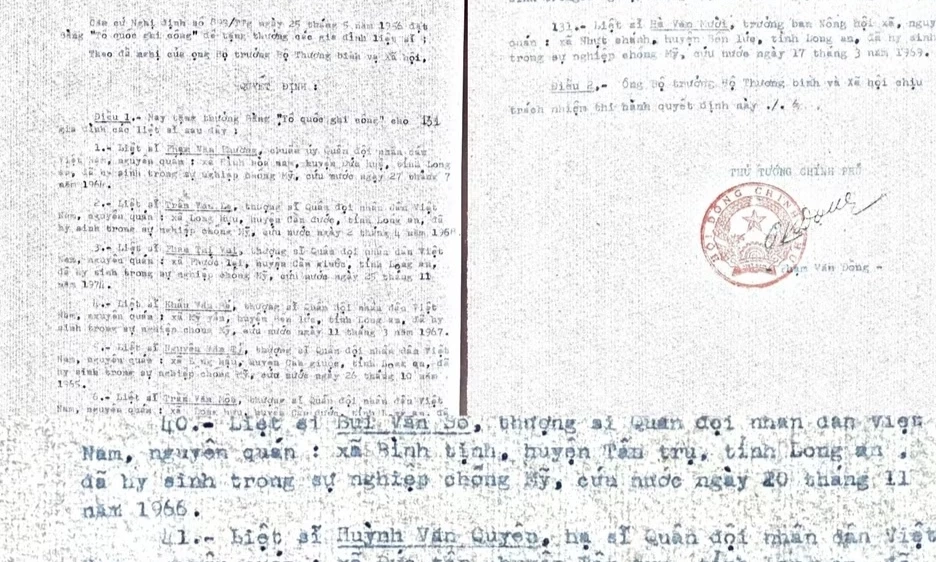 Căn cứ Nghị định số 809/TTg ngày 25 tháng 5 năm 1956 đặt
Bằng "Tổ quốc ghi công" để tặng thưởng các gia đình liệt sĩ ;
Theo đề nghị của ông Bộ trưởng Bộ Thương binh và Xã hội,
QUYẾT ĐỊNH :
Điều 1.- Nay tặng thưởng Bằng "Tổ quốc ghi công" cho 131
gia đình các liệt sĩ sau đây :
1.- Liệt sĩ Phạm Văn Thường, chuẩn úy Quân đội nhân dân
Việt Nam, nguyên quán : xã Bình hòa nam, huyện Đức huệ, tỉnh Long
an, đã hy sinh trong sự nghiệp chống Mỹ, cứu nước ngày 27 tháng 7
năm
2.- Liệt sĩ Trần Văn thượng sĩ Quân đội nhân dân Việt
Nam, nguyên quán : xã Long hựu, huyện Cần đước, tỉnh Long an, đã
hy sinh trong sự nghiệp chống Mỹ, cứu nước ngày 2 tháng 4 năm
3.- Liệt sĩ Phạm thượng sĩ Quân đội nhân dân Việt
Nam, nguyên quán : xã Phước lại, huyện Cần giuộc, tỉnh Long an,
đã hy sinh trong sự nghiệp chống Mỹ, cứu nước ngày 25 tháng 11
năm
4.- Liệt sĩ Văn thượng sĩ Quân đội nhân dân Việt
Nam, nguyên quán : xã Mỹ yên, huyện Bến lức, tỉnh Long an, đã hy
sinh trong sự nghiệp chống Mỹ, cứu nước ngày 11 tháng 3 năm 1967.
5.- Liệt sĩ Nguyễn Văn thượng sĩ Quân đội nhân dân Việt
Nam, nguyên quán : xã Long hậu, huyện Cần giuộc, tỉnh Long an, đã
hy sinh trong sự nghiệp chống Mỹ, cứu nước ngày 26 tháng 10 năm
1965.
6.- Liệt sĩ Trần Văn thượng sĩ Quân đội nhân dân Việt
Nam, nguyên quán : xã Long hựu, huyện Cần đước, tỉnh Long an, đã
131.- Liệt sĩ Hà Văn Mười, trưởng ban Nông hội xã, nguyên
quán : xã Nhựt chánh, huyện Bến lức, tỉnh Long an, đã hy sinh
trong sự nghiệp chống Mỹ, cứu nước ngày 17 tháng 3 năm 1969.
Điều 2.- Ông Bộ trưởng Bộ Thương binh và Xã hội chịu
trách nhiệm thi hành quyết định này ./.
THỦ TƯỚNG CHÍNH PHỦ
HỘI ĐỒNG CHÍNH PHỦ
- Phạm Văn Đồng -
40.- Liệt sĩ Bùi Văn Sỏ, thượng sĩ Quân đội nhân dân Việt
Nam, nguyên quán : xã Bình tịnh, huyện Tân trụ, tỉnh Long an ,
đã hy sinh trong sự nghiệp chống Mỹ, cứu nước ngày 20 tháng 11
năm 1966.
41.- Liệt sĩ Huỳnh Văn Quyên, hạ sĩ Quân đội nhân dân Việt